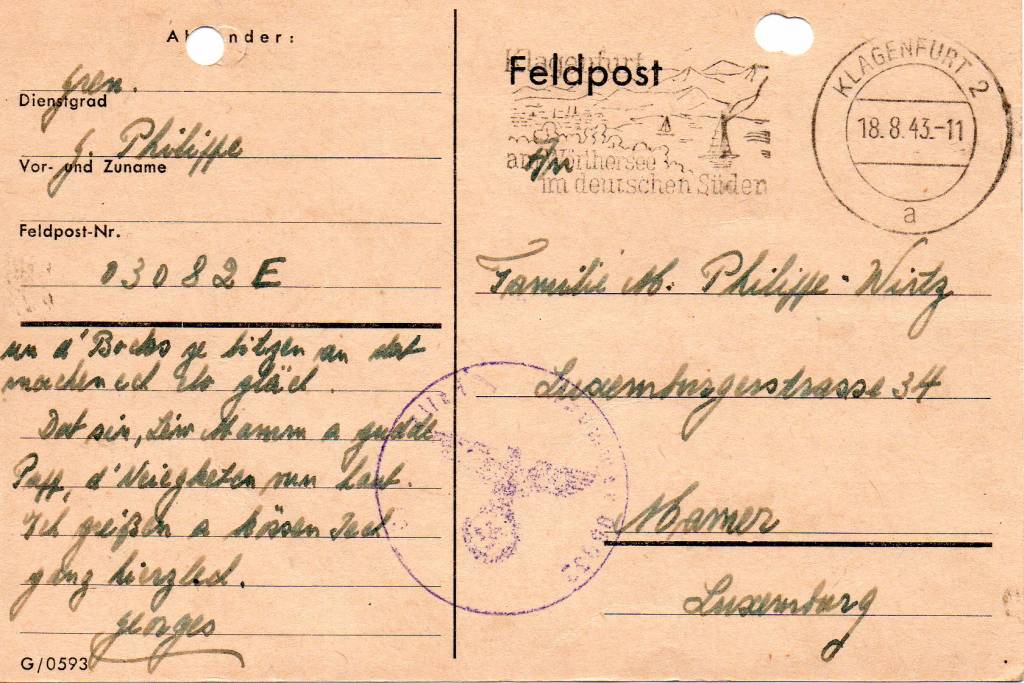 Absender:
Gren.
Dienstgrad
G. Philippe
Vor- und Zuname
Feldpost-Nr.
03082 E
un d'Bocks ze bitzen an dat
machen ech elo gläch.
Dat sin, Léiw Mamm a gudde
Papp, d'Neiegketen vun haut.
Ech greißen a kössen Iech
ganz hierzlech.
Georges
G/0593
Feldpost
Klagenfurt
am Wörthersee
im deutschen Süden
An
KLAGENFURT 2
18.8.43.-11
a
Familie M. Philippe-Wirtz
Luxemburgerstrasse 34
Mamer
Luxemburg